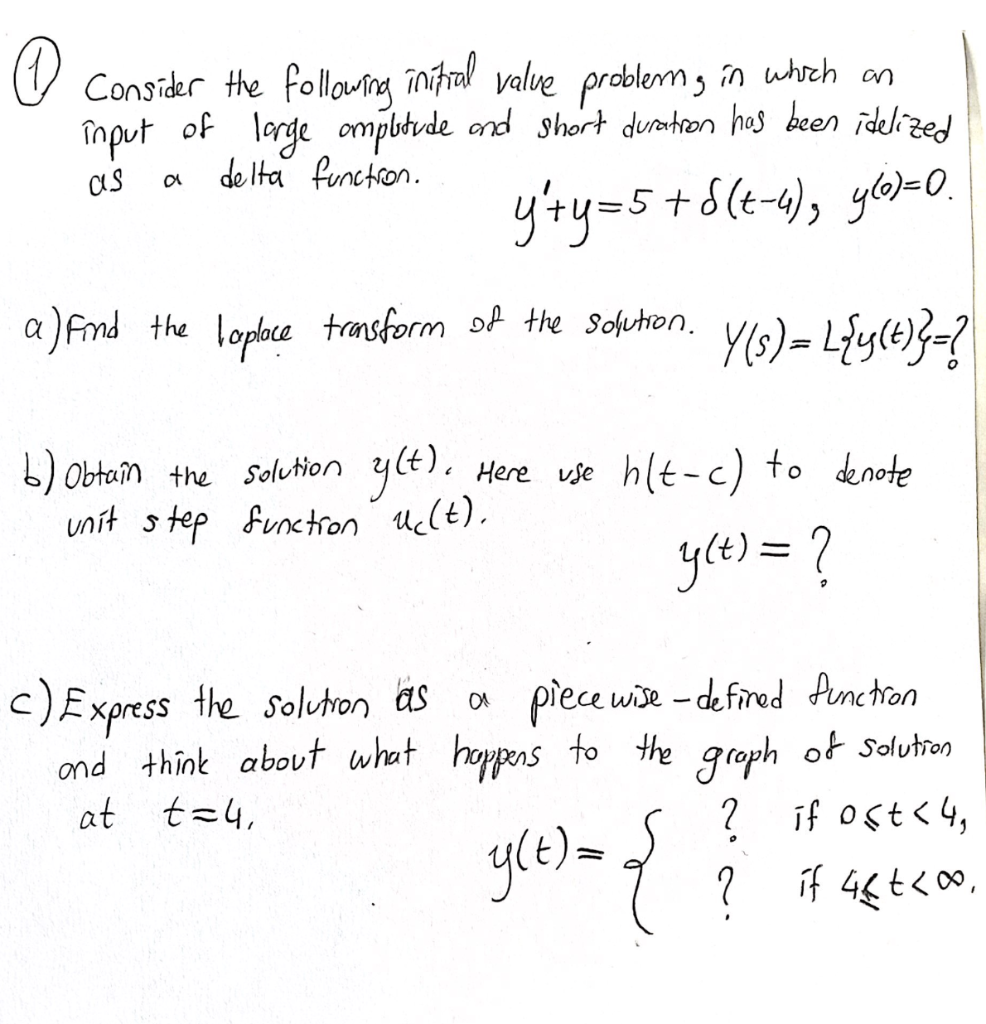 1 Consider the following initial value problem, in which an
input of large amplitude and short duration has been idelized
as a delta function.
y'+y=5+δ(t-4), y(0)=0.
a) Find the laplace transform of the solution. Y(s)=L{y(t)}=?
b) Obtain the solution y(t). Here use h(t-c) to denote
unit step function u_c(t).
y(t) = ?
c) Express the solution as a piecewise-defined function
and think about what happens to the graph of solution
at t=4,
y(t)= { ? if 0≤t<4,
? if 4≤t<∞,